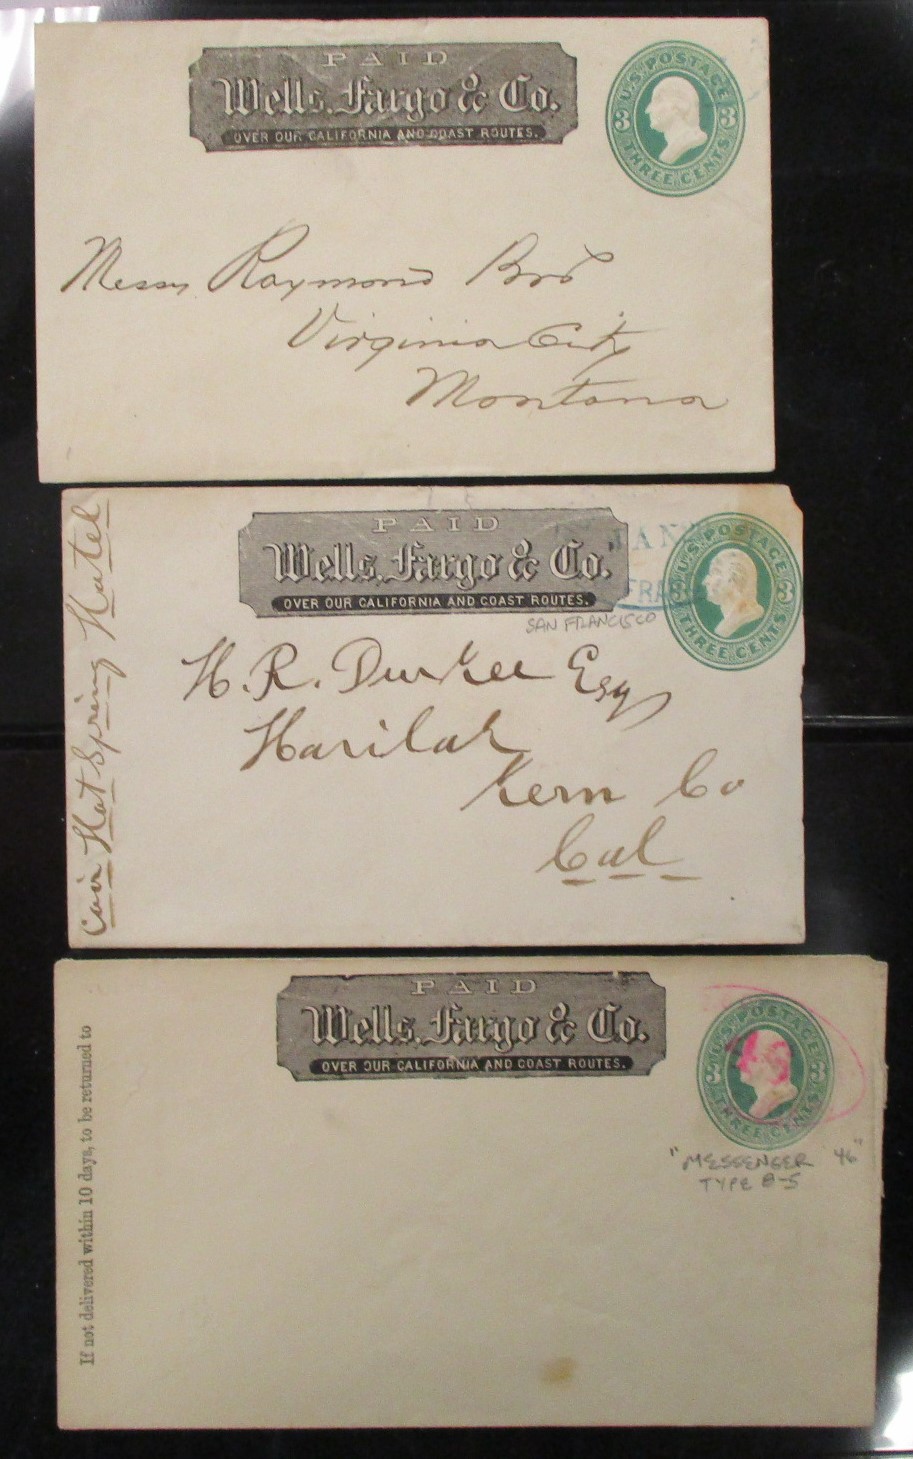 PAID
Wells, Fargo & Co.
OVER OUR CALIFORNIA AND COAST ROUTES.
U.S. POSTAGE
3 3
THREE CENTS
Messrs Raymond Bros
Virginia City
Montana
PAID
Wells, Fargo & Co.
OVER OUR CALIFORNIA AND COAST ROUTES.
U.S. POSTAGE
3 3
THREE CENTS
SAN FRANCISCO
H. R. Durkee Esq
Havilah
Kern Co
Cal
Hot Spring Hotel
PAID
Wells, Fargo & Co.
OVER OUR CALIFORNIA AND COAST ROUTES.
U.S. POSTAGE
3 3
THREE CENTS
"MESSENGER 46"
TYPE 8-5
If not delivered within 10 days, to be returned to